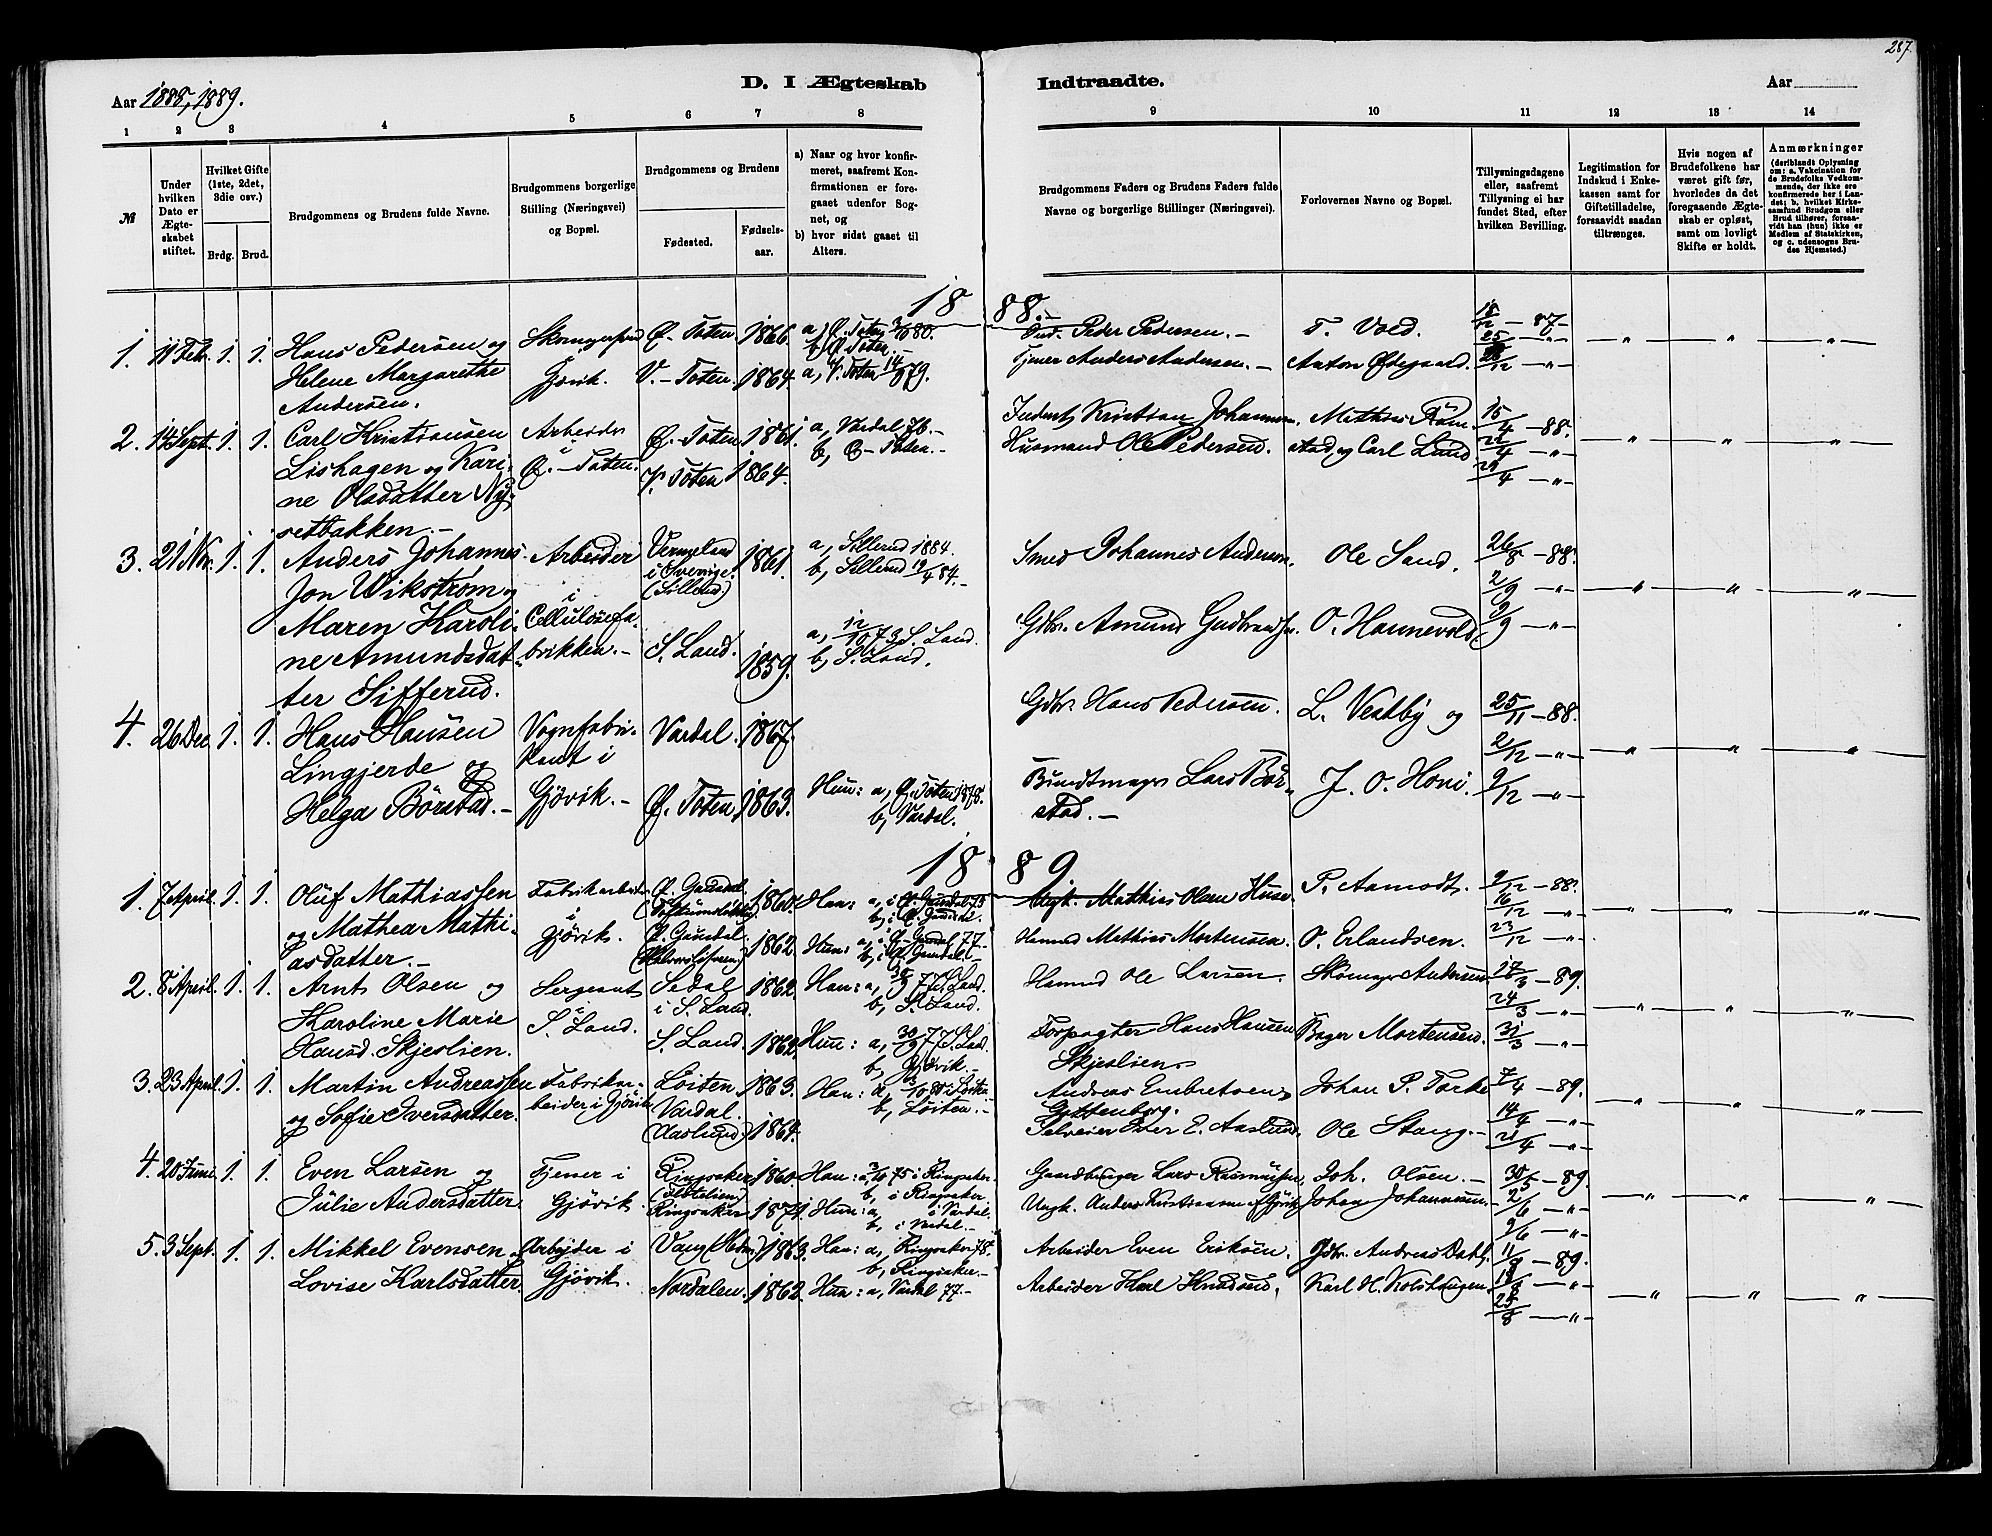 287.
D. I Ægteskab Indtraadte.
Aar 1888, 1889.
Aar
1 2 3 4 5 6 7 8 9 10 11 12 13 14
№
Under hvilken Dato er Ægteskabet stiftet.
Hvilket Gifte (1ste, 2det, 3die osv.)
Brdg. Brud.
Brudgommens og Brudens fulde Navne.
Brudgommens borgerlige Stilling (Næringsvei) og Bopæl.
Brudgommens og Brudens
Fødested.
Fødselsaar.
a) Naar og hvor konfirmeret, saafremt Konfirmationen er foregaaet udenfor Sognet, og
b) hvor sidst gaaet til Alters.
Brudgommens Faders og Brudens Faders fulde Navne og borgerlige Stillinger (Næringsvei).
Forlovernes Navne og Bopæl.
Tillysningsdagene eller, saafremt Tillysning ei har fundet Sted, efter hvilken Bevilling.
Legitimation for Indskud i Enkekassen samt for Giftetilladelse, forsaavidt saadan tiltrænges.
Hvis nogen af Brudefolkene har været gift før, hvorledes da det foregaaende Ægteskab er opløst, samt om lovligt Skifte er holdt.
Anmærkninger (deriblandt Oplysning om: a. Vakcination for de Brudefolks Vedkommende, der ikke ere konfirmerede her i Landet; b. hvilket Kirkesamfund Brudgom eller Brud tilhører, forsaavidt han (hun) ikke er Medlem af Statskirken, og c. udensogns Brudes Hjemsted.)
1888.
1. 11 Feb. 1. 1. Hans Pedersen og Helene Margarethe Andersen.
Gjøvik.
Ø. Toten 1866.
V. Toten. 1864.
a, Ø. Toten 80.
b, Ø. Toten.
a, V. Toten 14/ 79.
Ind. Peder Pedersen.
Tjener Anders Andersen.
T. Vold.
Anton Ødegaard.
18/12 - 87.
25/12 - " -
/12 - " -
2. 14 Sept. 1. 1. Carl Kristiansen Lishagen og Karine Olsdatter Nysetbakken.
Arbeider i Ø. Toten.
Ø. Toten 1861.
V. Toten 1864.
a, Vardal 76.
b, Ø. Toten.
Inderst Kristian Johannesen.
Husmand Ole Pedersen.
Mathias Ramstad og Carl Lund
15/4 - 88.
22/4 - " -
29/4 - " -
3. 21 Nov. 1. 1. Anders Johannes Jon Wikstrøm og Maren Karoline Amundsdatter Sifferud.
Arbeider i Cellulosefabrikken.
Vermeland i Sverige. (Sillerud) 1861.
S. Land. 1859.
a, Sillerud 1884.
b, Sillerud 19/4 84.
a, 12/10 73 S. Land.
b, S. Land.
Smed Johannes Anderson.
Gdbr. Amund Gudbrandsen.
Ole Sand.
O. Hannevold
26/8 - 88.
2/9 - " -
9/9 - " -
4. 26 Dec. 1. 1. Hans Hansen Lingjerde og Helga Børstad.
Vognfabrikant i Gjøvik.
Vardal. 1867.
Ø. Toten 1863.
Hun: a, Ø. Toten 1878.
b, Vardal.
Gdbr. Hans Pedersen.
Bundtmager Lars Børstad.
L. Vestby og J. O. Honi.
25/11 - 88.
2/12 - " -
9/12 - " -
1889.
1. 7 April. 1. 1. Oluf Mathiassen og Mathea Mathiasdatter.
Fabrikarbeider i Gjøvik.
Ø. Gausdal 1860.
Ø. Gausdal 1862.
Han: a, i Ø. Gausdal 75
b, i Ø. Gausdal.
Hun: a, i Ø. Gausdal 77.
b, i Ø. Gausdal.
Ungk. Mathias Olsen Huse
Hmand Mathias Mortensen.
P. Aamodt.
O. Erlandsen.
9/12 - 88.
16/12 - " -
23/12 - " -
2. 8 April. 1. 1. Arnt Olsen og Karoline Marie Hansd. Skjeslien.
Sergeant i S. Land.
Sedal i S. Land. 1862.
S. Land. 1862.
Han: a, 77 S. Land.
b, S. Land.
Hun: a, 30/9 77 S. Land.
b, Gjøvik.
Hmand Ole Larsen
Forpagter Hans Hansen Skjeslien
Skomager Andersen
Bager Mortensen.
17/3 - 89.
24/3 - " -
31/3 - " -
3. 23 April. 1. 1. Martin Andreassen og Sofie Iversdatter.
Fabrikarbeider i Gjøvik
Løiten 1863.
Vardal. (Aaslund) 1864.
Han: a, /10 80 i Løiten
b, Løiten.
Andreas Embretsen Gottenborg.
Selveier Iver E. Aaslund.
Johan P. Torke
Ole Stang.
7/4 - 89.
14/4 - " -
21/4 - " -
4. 20 Juni. 1. 1. Even Larsen og Julie Andersdatter.
Tjener i Gjøvik.
Ringsaker 1860.
Ringsaker 1871.
Han: a, /10 75 i Ringsaker.
b, i Ringsaker
Hun: a, i Vardal.
b, i Vardal.
Gaardbruger Lars Rasmussen
Ungk. Anders Kristiansen af Gjøvik
Joh. Olsen.
Johan Johannesen.
30/5 - 89.
2/6 - " -
9/6 - " -
5. 3 Sept. 1. 1. Mikkel Evensen Lovise Karlsdatter.
Arbeider i Gjøvik.
Vang (Hedm.) 1863.
Nordalen. 1862.
Han: a, Ringsaker 78.
b, Ringsaker.
Hun: a, Vardal 77.
Arbeider Even Eriksen.
Arbeider Karl Knudsen.
Gdbr. Andreas Dahl.
Karl H. Kolshaugen.
11/8 - 89.
18/8 - " -
25/8 - " -